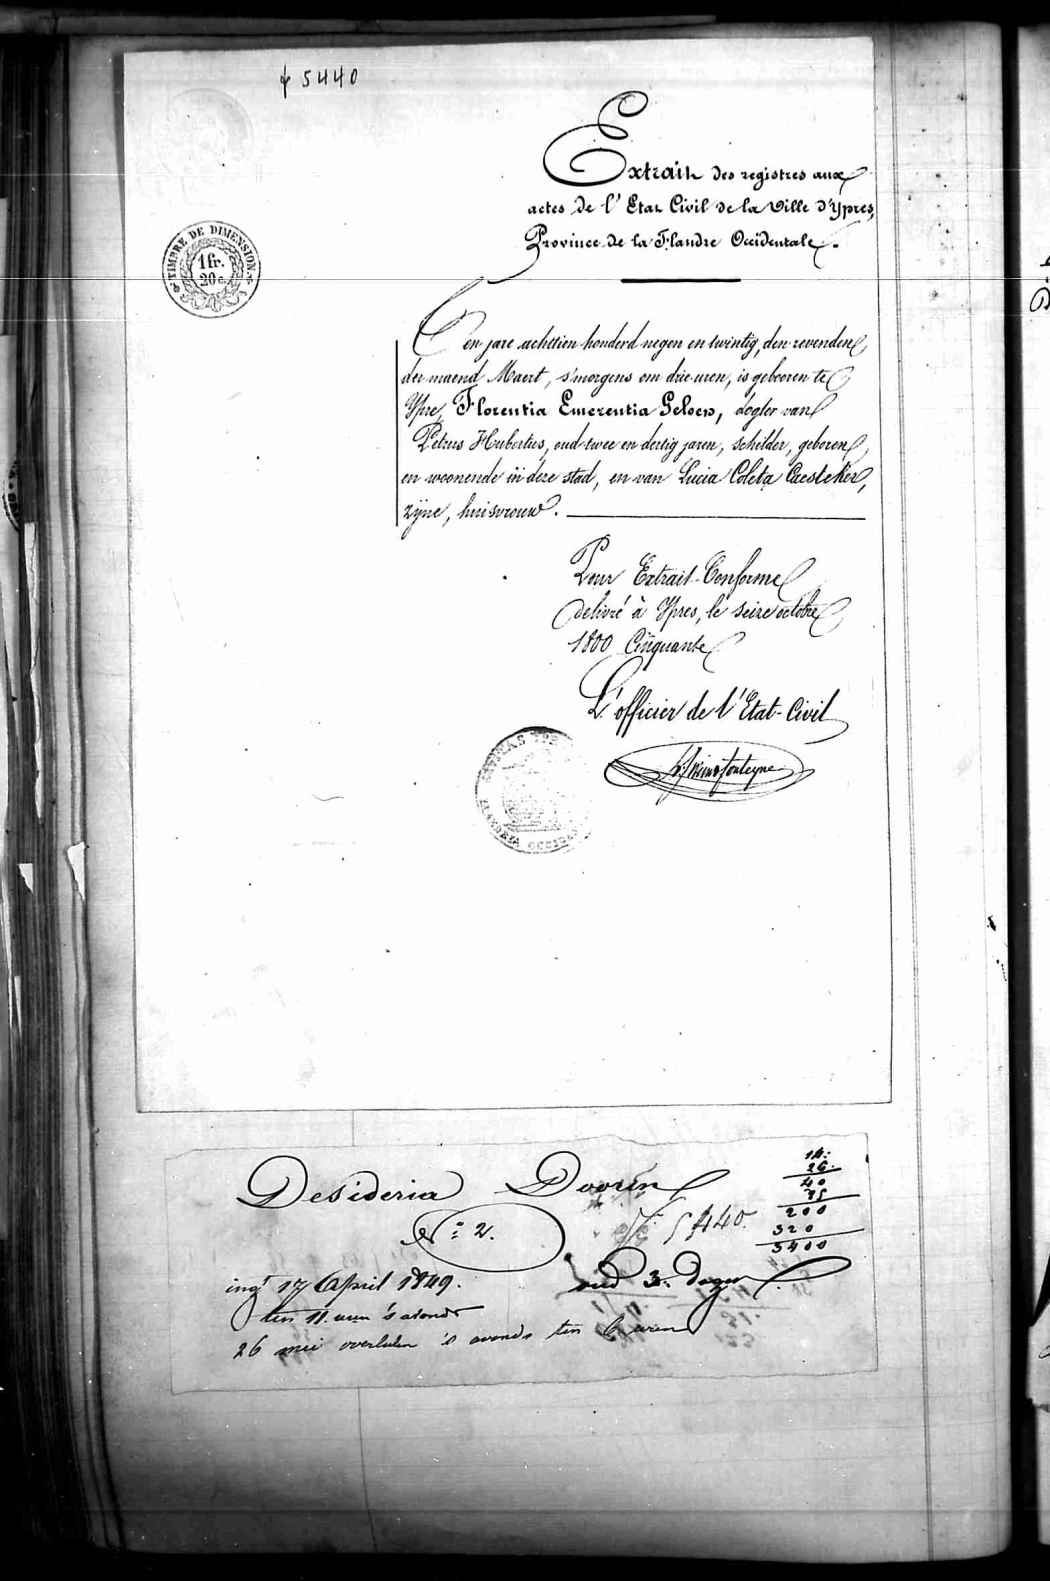 f 5440
Extrait des registres aux
actes de l'Etat Civil de la Ville d'Ypres,
Province de la Flandre Occidentale.
TIMBRE DE DIMENSION
1 fr.
20 c.
Den jare achttien honderd negen en twintig, den zevenden
der maend Maert, s'morgens om drie uren, is geboren te
Ypre, Florentia Emerentia Geloen, dogter van
Petrus Hubertus, oud twee en dertig jaren, schilder, geboren
en woonende in deze stad, en van Lucia Coleta Caesteker,
zijne, huisvrouw.
Pour Extrait Conforme
delivré à Ypres, le seize octobre
1800 Cinquante
L'officier de l'Etat-Civil
FLANDRIA OCCID
Desideria Dooren
N° 2.
5440.
14.
26.
40
200
320
5400
ing 17 April 1849.
oud 3. dagen
ten 11. uren 's avonds
26 mei overleden 's avonds ten 6 uren